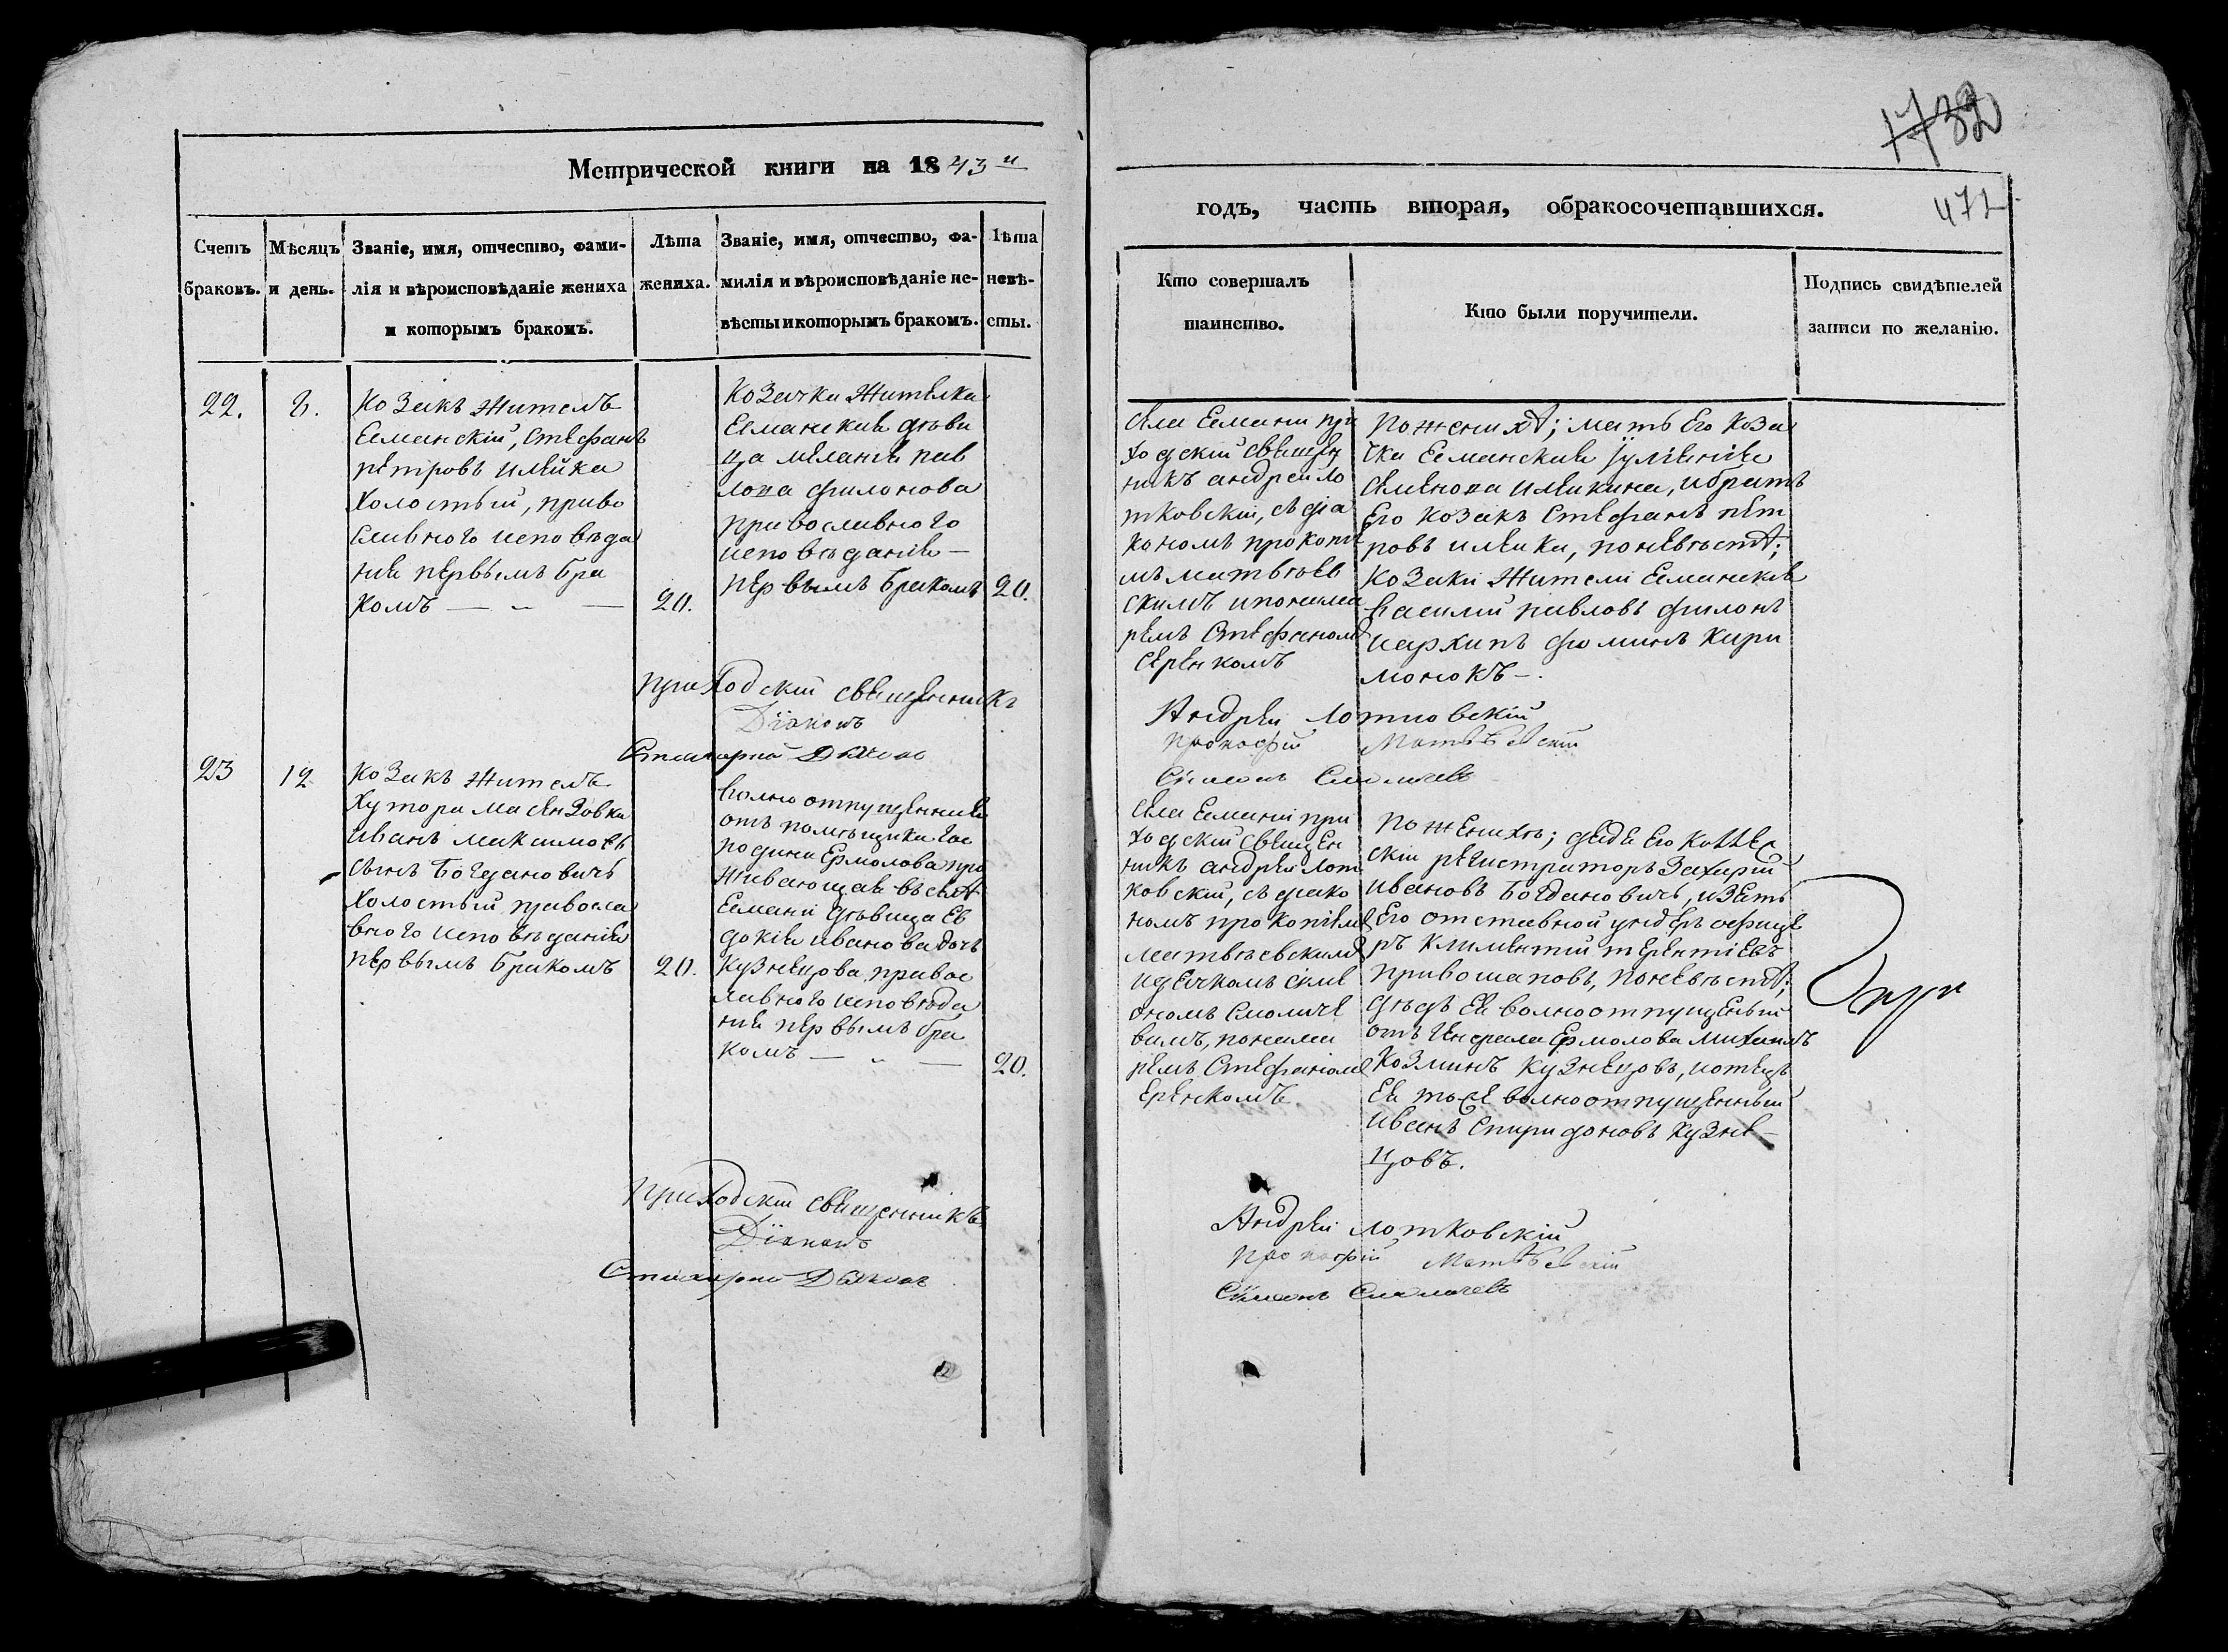 Метрической книги на 1843 й
Счетъ браковъ.
Мѣсяцъ и день.
Званіе, имя, отчество, фами-
лія и вѣроисповѣданіе жениха
и которымъ бракомъ.
Лѣта
жениха.
Званіе, имя, отчество, фа-
милія и вѣроисповѣданіе не-
вѣсты и которымъ бракомъ.
Лѣта
невѣ-
сты.
22.
8.
Козакъ житель
Есманскій, Стефанъ
Петровъ Илейка
холостый, право
славного исповѣда
нія первымъ бра
комъ — „ —
20.
Козачка жителка
Есманская дѣви
ца Меланія Пав
лова Филонова
православного
исповѣданія —
первымъ бракомъ
20.
Приходскій священникъ
Діаконъ
Стихарный Дьячокъ
23
12
Козакъ житель
хутора
Иванъ Максимовъ
сынъ Богдановичъ
холостый правосла
вного исповѣданія
первымъ бракомъ
20.
Волноотпущенная
отъ помѣщика гос
подина Ермолова про
живающая въ селѣ
Есмани дѣвица Ев
докія Иванова дочь
Кузнецова правос
лавного исповѣда
нія первымъ бра
комъ — „ —
20.
Приходскій священникъ
Діаконъ
Стихарный Дьячокъ
1732
472
годъ, часть вторая, обракосочетавшихся.
Кто совершалъ
таинство.
Кто были поручители.
Подпись свидѣтелей
записи по желанію.
села Есмани при
ходскій священ
никъ Андрей Ло
тковскій, съ діа
кономъ Прокопіе
мъ Матвѣев
скимъ и понама
ремъ Стефаномъ
Серенкомъ
По женихѣ; мать его коза
чка Есманская Іуліанія
Семенова Илейкина, и братъ
его козакъ Стефанъ Пет
ровъ Илейка, по невѣстѣ;
козаки жители Есманскіе
Василій Павловъ Филонъ
и Архипъ Фоминъ Кири
монокъ —.
Андрей Лотковскій
Прокофій Матвѣевскій
Симеонъ Смоличевъ
села Есмани при
ходскій священ
никъ Андрей Лот
ковскій, съ діако
номъ Прокопіемъ
Матвѣевскимъ
и дьячкомъ Симе
ономъ Смоличе
вимъ, понама
ремъ Стефаномъ
Еренкомъ
По женихѣ; дядя его коллеж
скій регистраторъ Захарій
Ивановъ Богдановичъ, и зять
его отставной ундеръ офице
ръ Климентій Терентіевъ
Привошаповъ, по невѣстѣ;
дѣдъ ея волноотпущеный
отъ генерала Ермолова Михаилъ
Козминъ Кузнецовъ, и отецъ
ея тоже волноотпущенный
Иванъ Спиридоновъ Кузне-
цовъ.
Андрей Лотковскій
Прокофій Матвѣевскій
Симеонъ Смоличевъ